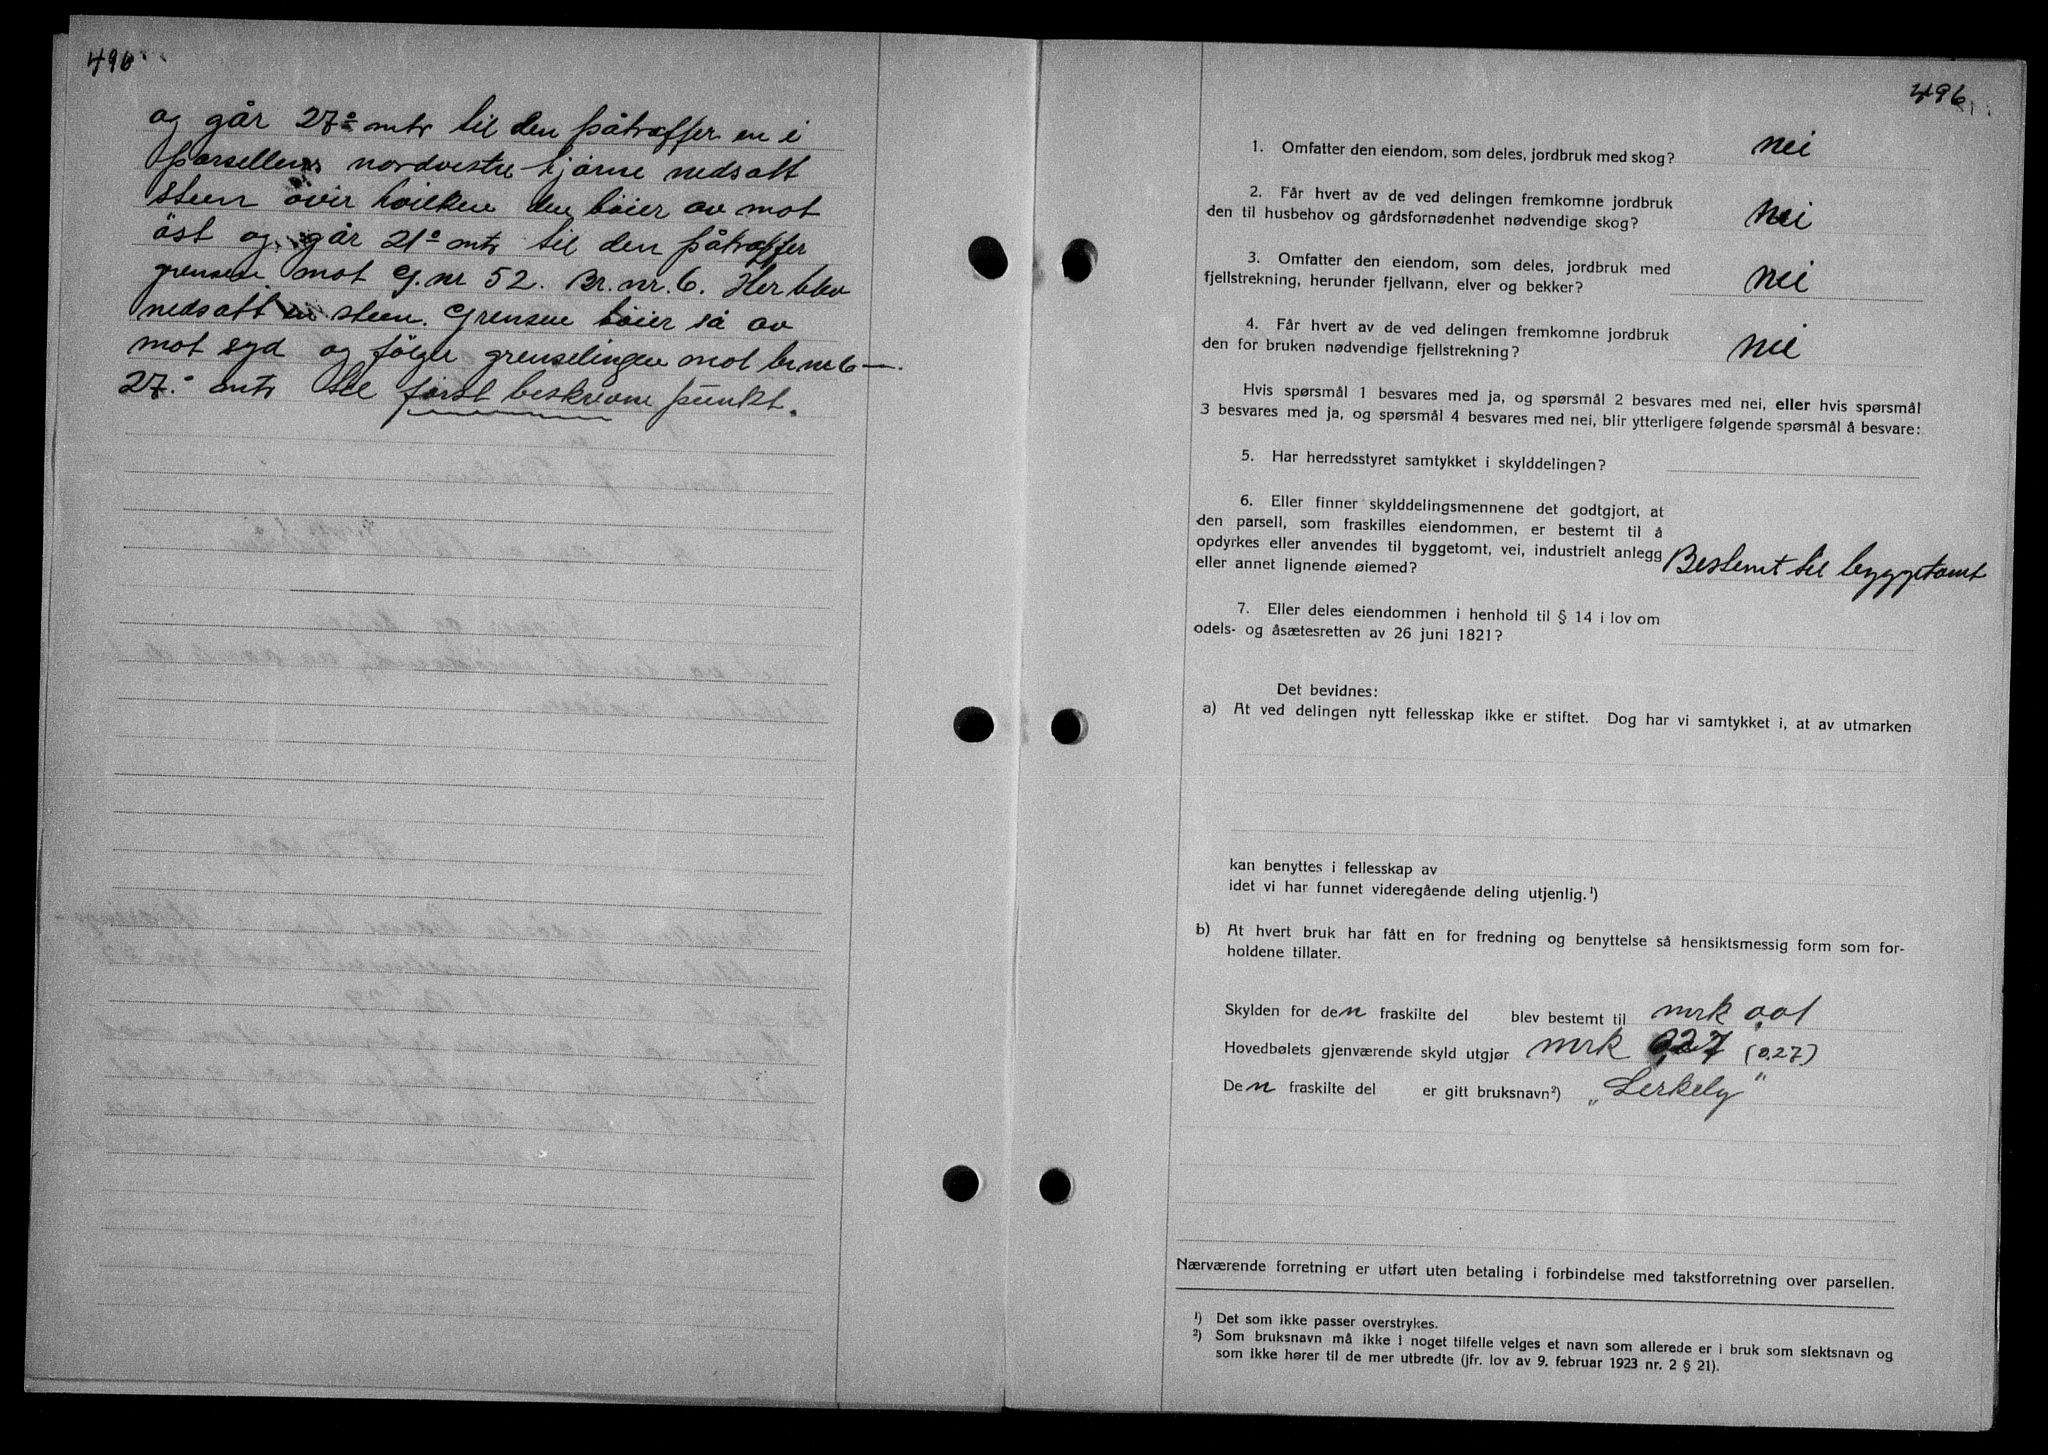 496
og går 27⁰ mtr til den påtræffer en i
parsellens nordvestre hjørne nedsatt
steen över hvilken den böier av mot
öst og går 21⁰ mtr til den påtræffer
grensen mot G.nr 52. Br.nr.6. Her blev
nedsatt en steen. Grensen böier så av
mot syd og følger grenselingen mot br nr 6 —
27.⁰ mtr til først beskrevne punkt.
496
1. Omfatter den eiendom, som deles, jordbruk med skog? nei
2. Får hvert av de ved delingen fremkomne jordbruk
den til husbehov og gårdsfornødenhet nødvendige skog? nei
3. Omfatter den eiendom, som deles, jordbruk med
fjellstrekning, herunder fjellvann, elver og bekker? nei
4. Får hvert av de ved delingen fremkomne jordbruk
den for bruken nødvendige fjellstrekning? nei
Hvis spørsmål 1 besvares med ja, og spørsmål 2 besvares med nei, eller hvis spørsmål
3 besvares med ja, og spørsmål 4 besvares med nei, blir ytterligere følgende spørsmål å besvare:
5. Har herredsstyret samtykket i skylddelingen?
6. Eller finner skylddelingsmennene det godtgjort, at
den parsell, som fraskilles eiendommen, er bestemt til å
opdyrkes eller anvendes til byggetomt, vei, industrielt anlegg
eller annet lignende øiemed? Bestemt til byggetomt
7. Eller deles eiendommen i henhold til § 14 i lov om
odels- og åsætesretten av 26 juni 1821?
Det bevidnes:
a) At ved delingen nytt fellesskap ikke er stiftet. Dog har vi samtykket i, at av utmarken
kan benyttes i fellesskap av
idet vi har funnet videregående deling utjenlig.¹)
b) At hvert bruk har fått en for fredning og benyttelse så hensiktsmessig form som for-
holdene tillater.
Skylden for den fraskilte del blev bestemt til mrk 0,01
Hovedbølets gjenværende skyld utgjør mrk 0,27 (0,27)
Den fraskilte del er gitt bruksnavn²) „Lerkely"
Nærværende forretning er utført uten betaling i forbindelse med takstforretning over parsellen.
¹) Det som ikke passer overstrykes.
²) Som bruksnavn må ikke i noget tilfelle velges et navn som allerede er i bruk som slektsnavn og
som ikke hører til de mer utbredte (jfr. lov av 9. februar 1923 nr. 2 § 21).